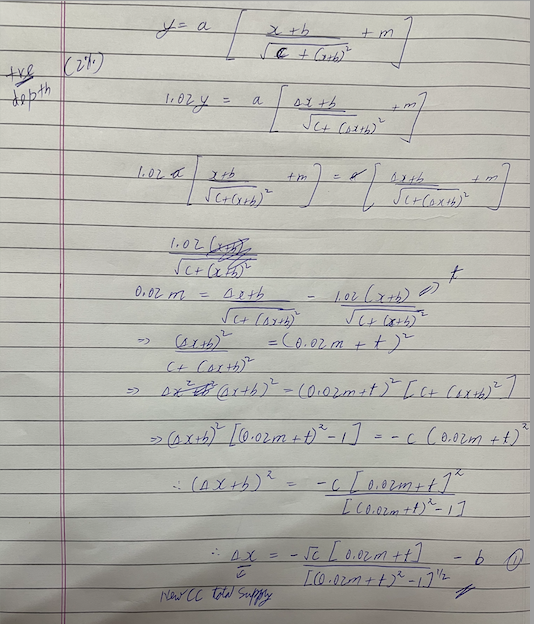 y = a [ (x+b) / √(c + (x+b)²) + m ]
+ve (2%)
depth
1.02y = a [ (Δx+b) / √(c+ (Δx+b)²) + m ]
1.02 a [ (x+b) / √(c+(x+b)²) + m ] = a [ (Δx+b) / √(c+(Δx+b)²) + m ]
1.02 (x+b) / √(c+(x+b)²)
0.02 m = (Δx+b) / √(c+ (Δx+b)²) - 1.02 (x+b) / √(c+ (x+b)²) t
⇒ (Δx+b)² / (c+ (Δx+b)²) = (0.02m + t)²
⇒ (Δx+b)² = (0.02m+t)² [c+ (Δx+b)²]
⇒ (Δx+b)² [(0.02m+t)² -1] = -c (0.02m + t)²
∴ (Δx+b)² = -c [0.02m+t]² / [(0.02m+t)² -1]
∴ Δx = -√c [0.02m+t] / [(0.02m+t)² -1]^1/2 - b ①
New CC total supply